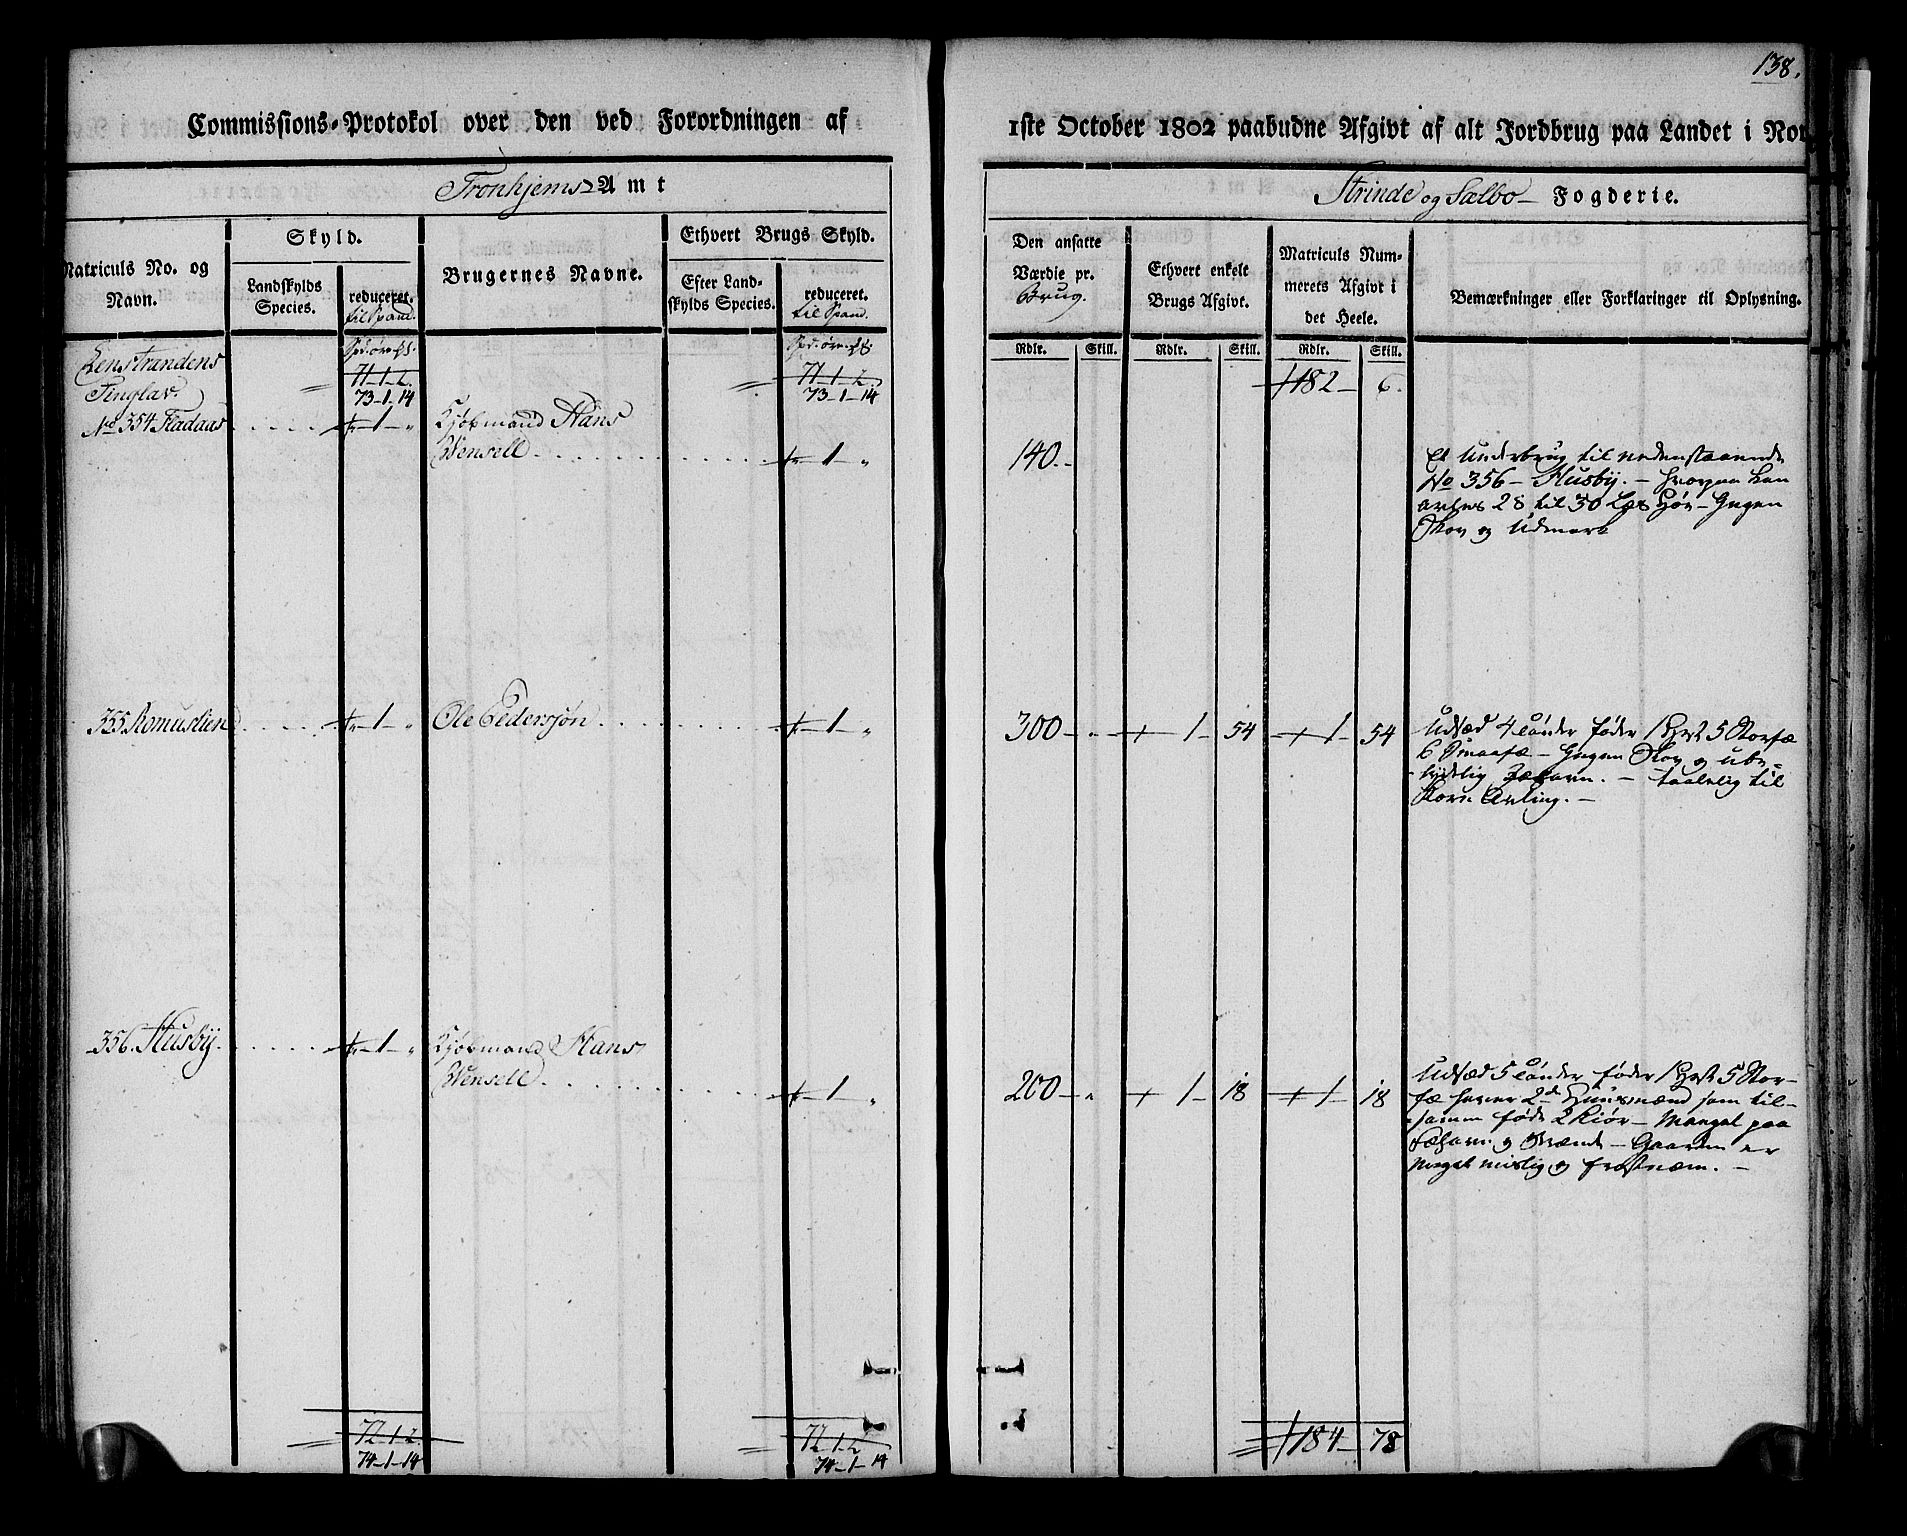 138.
Commissions-Protokol over den ved Forordningen af
1ste October 1802 paabudne Afgivt af alt Jordbrug paa Landet i Nor
Tronhjems Amt
Strinde og Sælbo Fogderie.
Matriculs No. og Navn.
Skyld.
Landskylds Species.
reduceret. til Spand.
Brugernes Navne.
Ethvert Brugs Skyld.
Efter Landskylds Species.
reduceret. til Spand.
Den ansatte Værdie pr. Brug.
Ethvert enkelt Brugs Afgivt.
Matriculs Nummerets Afgivt i det Heele.
Bemærkninger eller Forklaringer til Oplysning.
Rdlr. Skill. Rdlr. Skill. Rdlr. Skill.
Lenstrandens
Tinglav.
71-1-2. 71-1-2. 182 - 6.
73-1-14 73-1-14
No 354 Fladaas - 1 - " Kjøbmand Hans
Wensell - 1 - " 140 -
Et Underbrug til nedenstaaende
No 356 - Husby. - hvorpaa kan
avles 28 til 30 Læs Høe - Ingen
Skov og Udmark
355 Romuslien - 1 - " Ole Pedersøn - 1 - " 300 - - 1 - 54 - 1 - 54
Udsæd 4 Tønder føder 1 Hest 5 Storfæ
6 Smaafæ - Ingen Skov og ube-
tydelig Fæhavn. - taalelig til
Korn Avling. -
356. Husby - 1 - " Kjøbmand Hans
Wensell - 1 - " 200 - " - 1 - 18 - 1 - 18
Udsæd 5 Tønder føder 1 Hest 5 Stor-
fæ haver 2de Huusmænd som til-
sammen føde 2 Kiør - Mangel paa
Fæhavn og Brænde - Gaarden er
meget mislig og frostnæm. -
72-1-2. 72-1-2 184 - 78
74-1-14 74-1-14